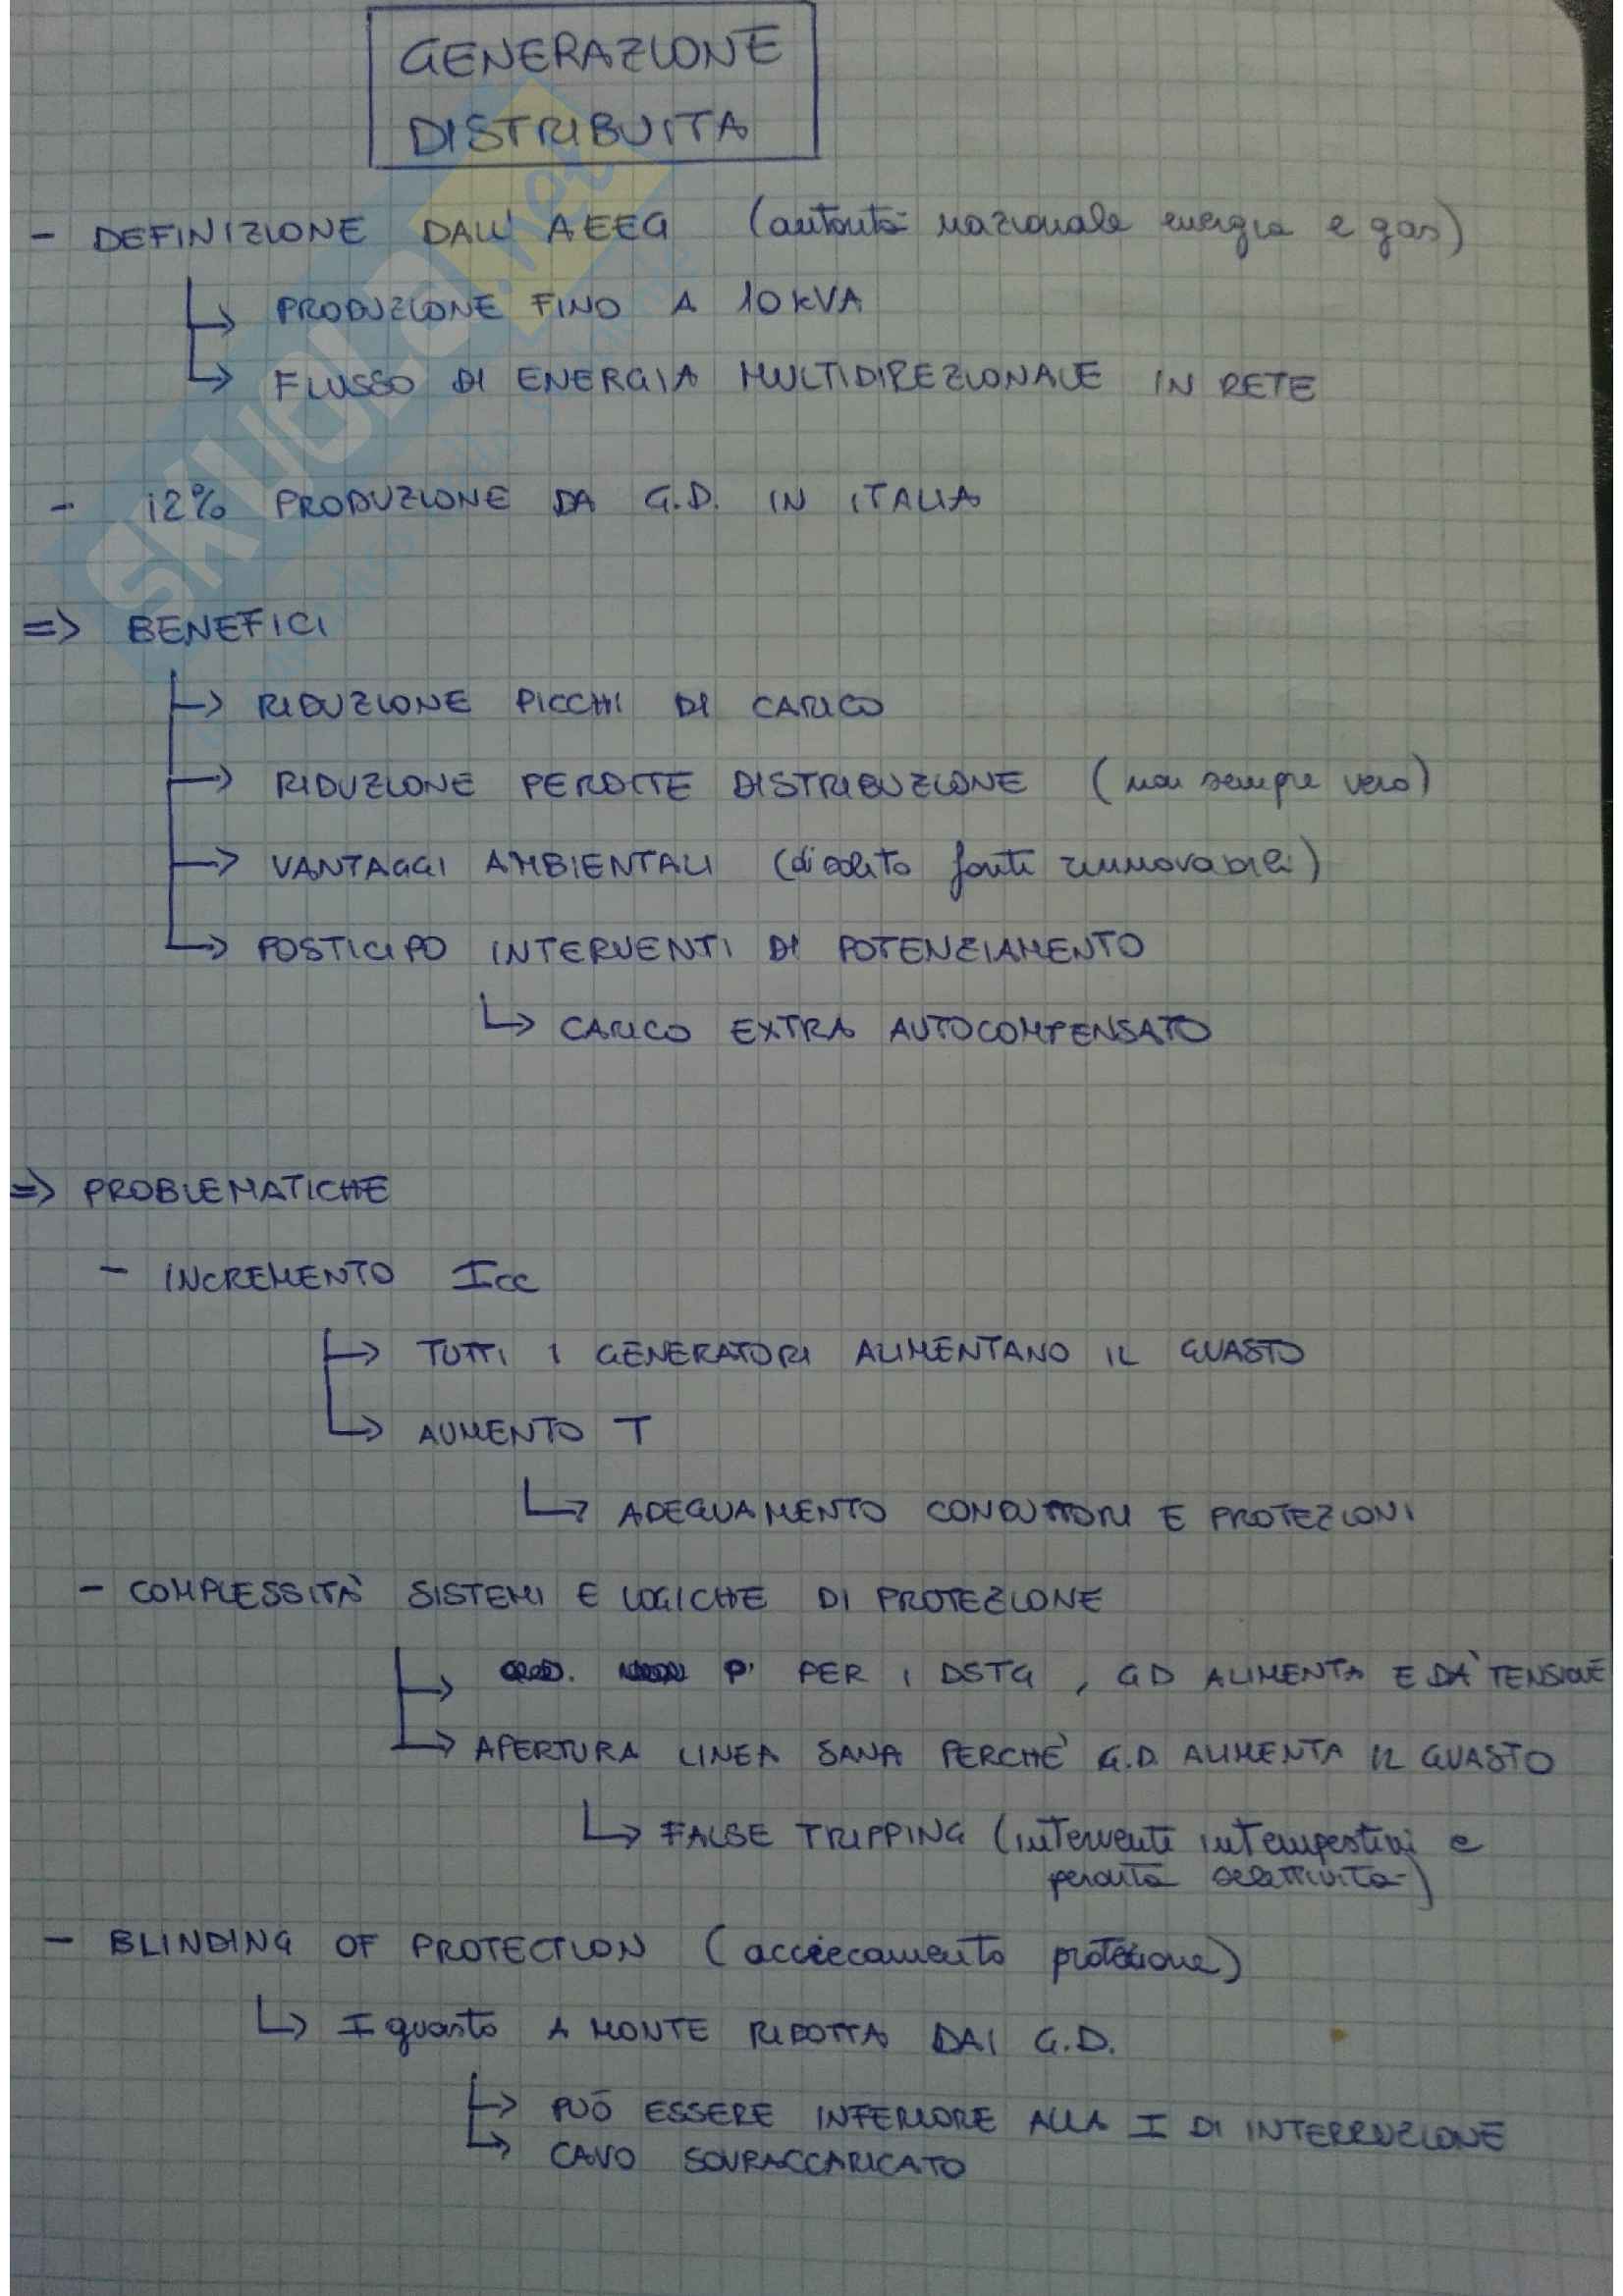 GENERAZIONE
DISTRIBUITA
- DEFINIZIONE DALL' AEEG (autorità nazionale energia e gas)
↳ PRODUZIONE FINO A 10 kVA
↳ FLUSSO DI ENERGIA MULTIDIREZIONALE IN RETE
- 12% PRODUZIONE DA G.D. IN ITALIA
=> BENEFICI
↳ RIDUZIONE PICCHI DI CARICO
↳ RIDUZIONE PERDITE DISTRIBUZIONE (non sempre vero)
↳ VANTAGGI AMBIENTALI (di solito fonti rinnovabili)
↳ POSTICIPO INTERVENTI DI POTENZIAMENTO
↳ CARICO EXTRA AUTOCOMPENSATO
=> PROBLEMATICHE
- INCREMENTO Icc
↳ TUTTI I GENERATORI ALIMENTANO IL GUASTO
↳ AUMENTO T
↳ ADEGUAMENTO CONDUTTORI E PROTEZIONI
- COMPLESSITÀ SISTEMI E LOGICHE DI PROTEZIONE
↳ P. PER I DSTG, GD ALIMENTA E DA' TENSIONE
↳ APERTURA LINEA SANA PERCHÈ G.D. ALIMENTA IL GUASTO
↳ FALSE TRIPPING (interventi intempestivi e
perdita selettività)
- BLINDING OF PROTECTION (acciecamento protezione)
↳ I guasto A MONTE RIDOTTA DAI G.D.
↳ PUÒ ESSERE INFERIORE ALLA I DI INTERRUZIONE
↳ CAVO SOVRACCARICATO
SKUOLA.net